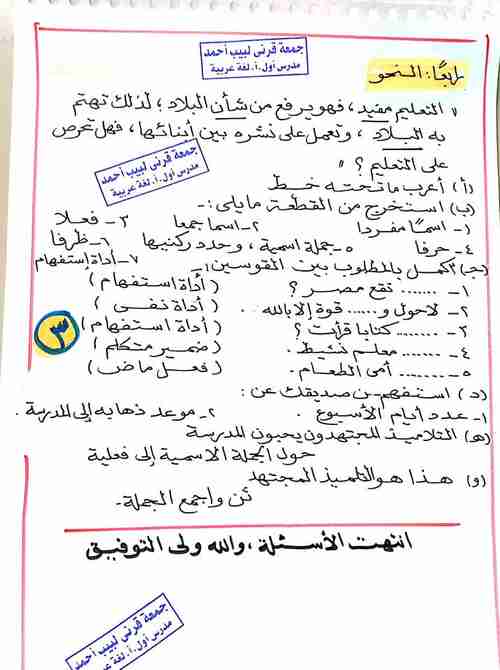 جمعة قرنى لبيب أحمد
مدرس أول.أ. لغة عربية
رابعًا: النحو
" التعليم مفيد، فهو يرفع من شأن البلاد؛ لذلك تهتم
به البلاد، وتعمل على نشره بين أبنائها، فهل تحرص
على التعليم؟ "
جمعة قرنى لبيب أحمد
مدرس أول.أ. لغة عربية
(أ) أعرب ما تحته خط
(ب) استخرج من القطعة ما يلى:-
١- اسمًا مفردا ٢- اسما جمعا ٣- فعلا
٤- حرفا ٥- جملة اسمية، وحدد ركنيها ٦- ظرفا
٧- أداة إستفهام
(جـ) أكمل بالمطلوب بين القوسين:
١- ....... تقع مصر؟ (أداة استفهام)
٢- لاحول و...... قوة إلا بالله. (أداة نفى)
٣- ........ كتابا قرأت؟ (أداة استفهام)
٤- ....... معلم نشيط. (ضمير متكلم)
٥- ....... أمى الطعام. (فعل ماض)
٣
(د) استفهم من صديقك عن:
١- عدد أيام الأسبوع. ٢- موعد ذهابه إلى المدرسة.
(هـ) التلاميذ المجتهدون يحبون المدرسة
حول الجملة الاسمية إلى فعلية
(و) هذا هو التلميذ المجتهد
ثن واجمع الجملة.
انتهت الأسئلة، والله ولى التوفيق
جمعة قرنى لبيب أحمد
مدرس أول.أ. لغة عربية